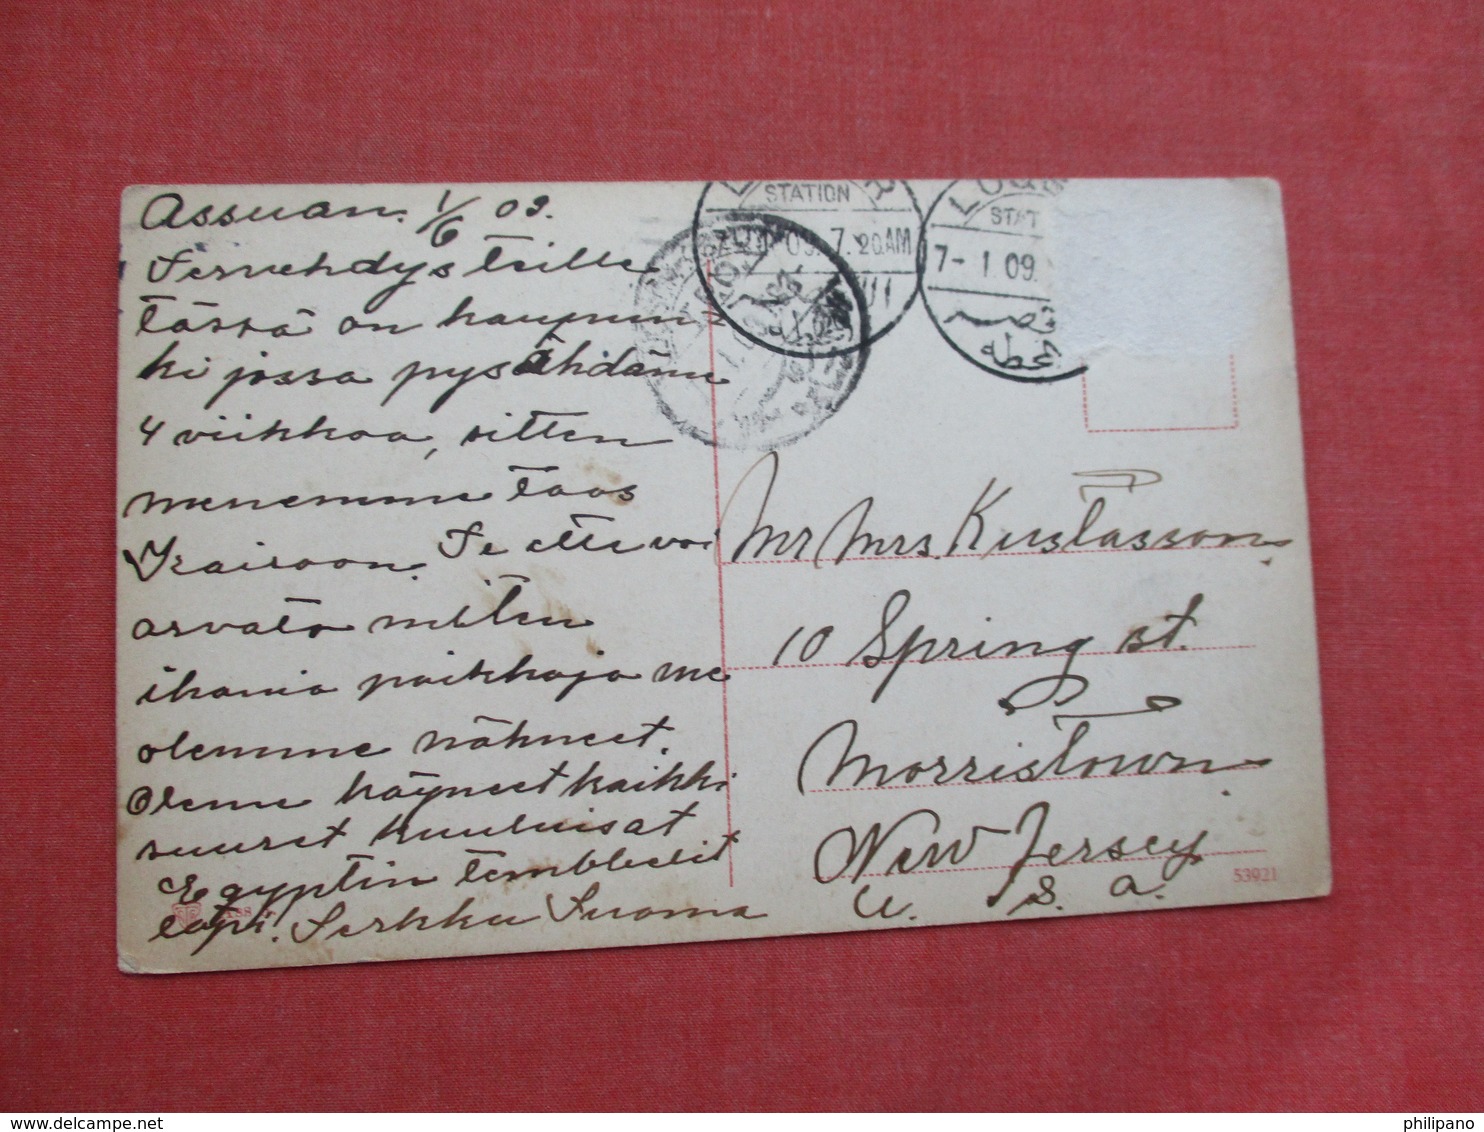 Assuan. 1/6 09.
Tervehdys teille
tässä on kaupun-
ki jossa pysähdämme
4 viikkoa, sitten
menemme taas
Kairoon. Te ette voi
arvata miten
ihania paikkoja me
olemme nähneet.
Oleme käyneet kaikki
suuret kuuluisat
Egyptin tembleliit
läpi. Serkku Suoma
STATION
7-1 09. 7.20AM
LUX
STAT
7-1 09.
Mr Mrs Kustasson.
10 Spring st.
Morristown
New Jersey
U. S. A.
53921
philipano